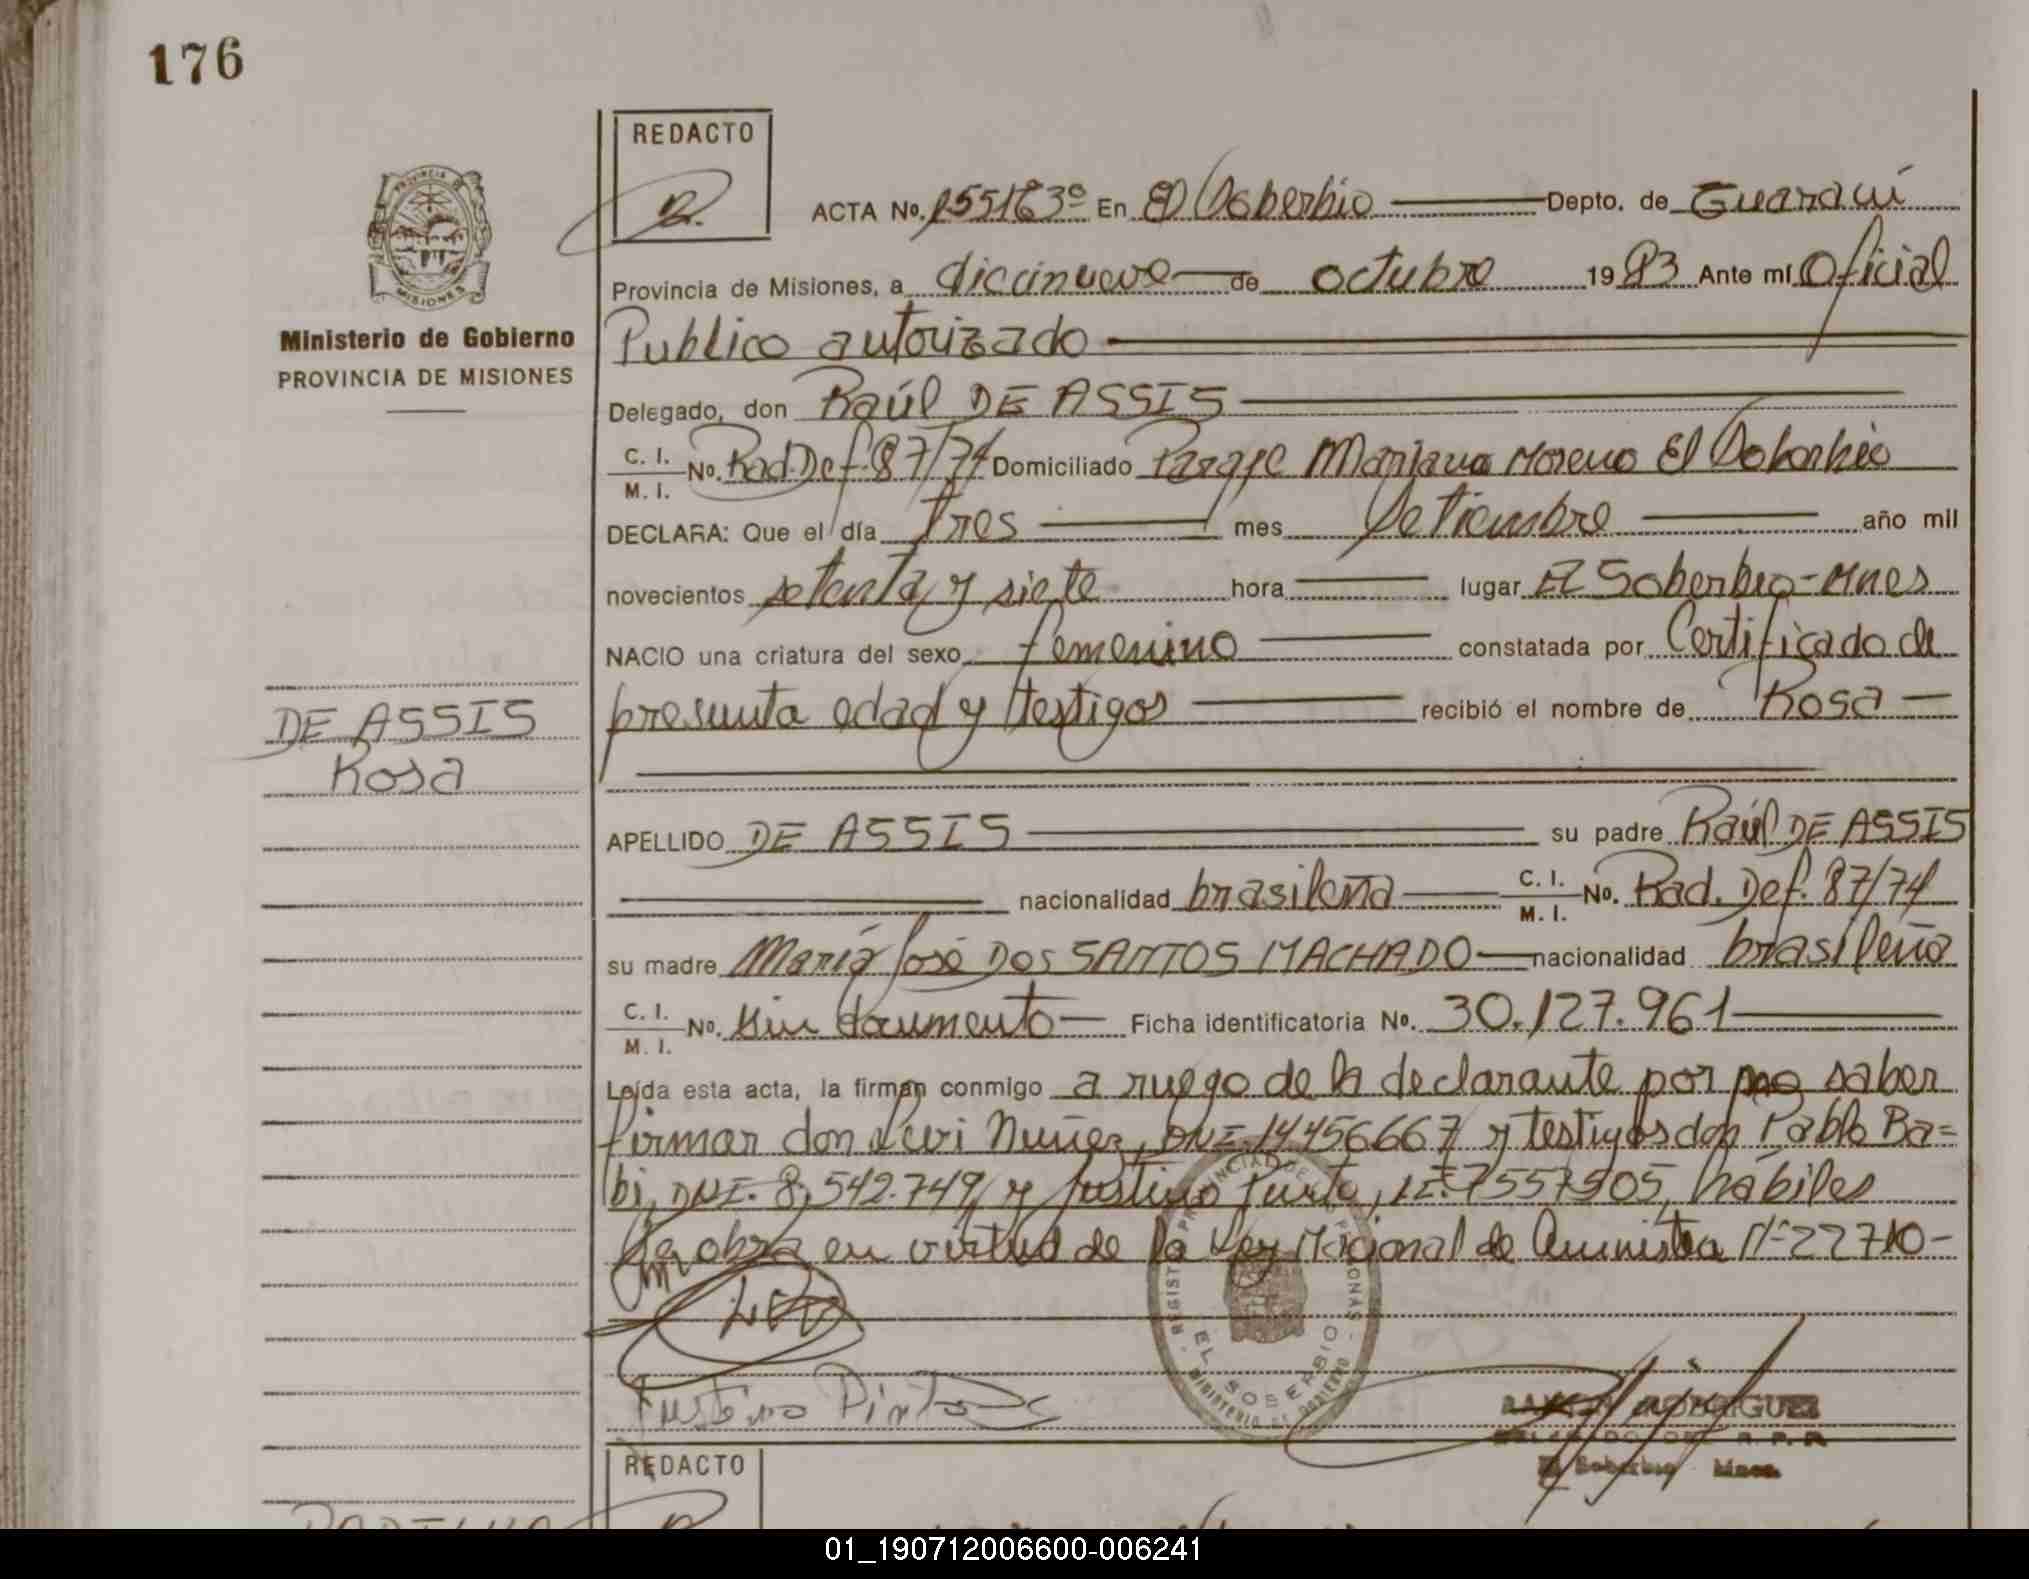 176
REDACTO
PROVINCIA DE
MISIONES
Ministerio de Gobierno
PROVINCIA DE MISIONES
ACTA No. 1551T63º En El Soberbio Depto. de Guaraní
Provincia de Misiones, a diecinueve de octubre 19 83 Ante mí Oficial
Publico autorizado
Delegado, don Raúl DE ASSIS
C. I. / M. I. No. Rad. Def. 87/74 Domiciliado Paraje Mariano Moreno El Soberbio
DECLARA: Que el día tres mes Setiembre año mil
novecientos setenta y siete hora lugar El Soberbio-Mnes
NACIO una criatura del sexo femenino constatada por Certificado de
presunta edad y testigos recibió el nombre de Rosa
DE ASSIS
Rosa
APELLIDO DE ASSIS su padre Raúl DE ASSIS
nacionalidad brasileña C. I. / M. I. No. Rad. Def. 87/74
su madre María José DOS SANTOS MACHADO nacionalidad brasileña
C. I. / M. I. No. Sin documento Ficha identificatoria No. 30.127.961
Leída esta acta, la firman conmigo a ruego de la declarante por no saber
firmar don Nuñez, DNI. 14456667 y testigos don Pablo Ba=
bi, DNI. 8,542.749, y Justino Pinto, LE. 7557505, hábiles
Se obra en virtud de la Ley Nacional de Amnistia Nº 22710-
REGISTRO PROVINCIAL DE LAS PERSONAS
EL SOBERBIO
MINISTERIO DE GOBIERNO
Justino Pinto
RODRIGUEZ
DELEGADO DEL R. P. P.
El Soberbio Mnes.
REDACTO
01_190712006600-006241